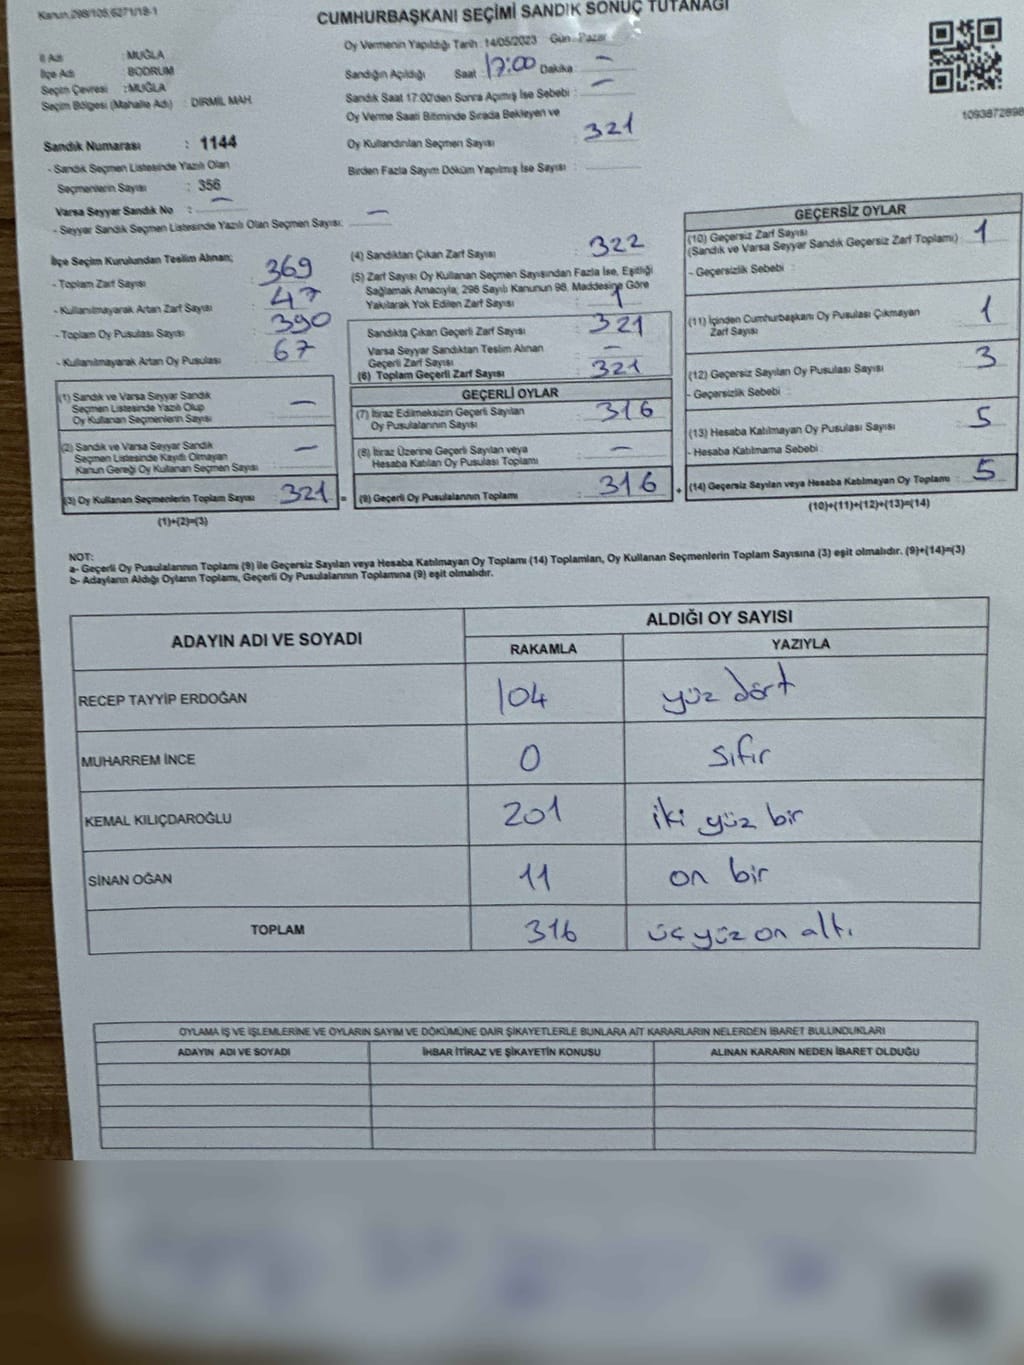 Kanun:298/105,6271/18-1
CUMHURBAŞKANI SEÇİMİ SANDIK SONUÇ TUTANAĞI
İl Adı : MUĞLA
İlçe Adı : BODRUM
Seçim Çevresi : MUĞLA
Seçim Bölgesi (Mahalle Adı) : DİRMİL MAH.
Oy Vermenin Yapıldığı Tarih : 14/05/2023 Gün : Pazar
Sandığın Açıldığı Saat : 17:00 Dakika : —
Sandık Saat 17:00'den Sonra Açımış İse Sebebi : —
Oy Verme Saati Bitiminde Sırada Bekleyen ve
Oy Kullandırılan Seçmen Sayısı : 321
Birden Fazla Sayım Döküm Yapılmış İse Sayısı :
1093872898
Sandık Numarası : 1144
- Sandık Seçmen Listesinde Yazılı Olan
Seçmenlerin Sayısı : 356
Varsa Seyyar Sandık No : —
- Seyyar Sandık Seçmen Listesinde Yazılı Olan Seçmen Sayısı: —
İlçe Seçim Kurulundan Teslim Alınan;
- Toplam Zarf Sayısı : 369
- Kullanılmayarak Artan Zarf Sayısı : 47
- Toplam Oy Pusulası Sayısı : 390
- Kullanılmayarak Artan Oy Pusulası : 67
(1) Sandık ve Varsa Seyyar Sandık
Seçmen Listesinde Yazılı Olup
Oy Kullanan Seçmenlerin Sayısı : —
(2) Sandık ve Varsa Seyyar Sandık
Seçmen Listesinde Kayıtlı Olmayan
Kanun Gereği Oy Kullanan Seçmen Sayısı : —
(3) Oy Kullanan Seçmenlerin Toplam Sayısı : 321 =
(1)+(2)=(3)
(4) Sandıktan Çıkan Zarf Sayısı : 322
(5) Zarf Sayısı Oy Kullanan Seçmen Sayısından Fazla İse, Eşitliği
Sağlamak Amacıyla; 298 Sayılı Kanunun 98. Maddesine Göre
Yakılarak Yok Edilen Zarf Sayısı : 1
Sandıkta Çıkan Geçerli Zarf Sayısı : 321
Varsa Seyyar Sandıktan Teslim Alınan
Geçerli Zarf Sayısı : —
(6) Toplam Geçerli Zarf Sayısı : 321
GEÇERLİ OYLAR
(7) İtiraz Edilmeksizin Geçerli Sayılan
Oy Pusulalarının Sayısı : 316
(8) İtiraz Üzerine Geçerli Sayılan veya
Hesaba Katılan Oy Pusulası Toplamı : —
(9) Geçerli Oy Pusulalarının Toplamı : 316 +
GEÇERSİZ OYLAR
(10) Geçersiz Zarf Sayısı
(Sandık ve Varsa Seyyar Sandık Geçersiz Zarf Toplamı) : 1
- Geçersizlik Sebebi :
(11) İçinden Cumhurbaşkanı Oy Pusulası Çıkmayan
Zarf Sayısı : 1
(12) Geçersiz Sayılan Oy Pusulası Sayısı : 3
- Geçersizlik Sebebi :
(13) Hesaba Katılmayan Oy Pusulası Sayısı : 5
- Hesaba Katılmama Sebebi :
(14) Geçersiz Sayılan veya Hesaba Katılmayan Oy Toplamı : 5
(10)+(11)+(12)+(13)=(14)
NOT:
a- Geçerli Oy Pusulalarının Toplamı (9) ile Geçersiz Sayılan veya Hesaba Katılmayan Oy Toplamı (14) Toplamları, Oy Kullanan Seçmenlerin Toplam Sayısına (3) eşit olmalıdır. (9)+(14)=(3)
b- Adayların Aldığı Oyların Toplamı, Geçerli Oy Pusulalarının Toplamına (9) eşit olmalıdır.
ADAYIN ADI VE SOYADI ALDIĞI OY SAYISI
RAKAMLA YAZIYLA
RECEP TAYYİP ERDOĞAN 104 yüz dört
MUHARREM İNCE 0 sıfır
KEMAL KILIÇDAROĞLU 201 iki yüz bir
SİNAN OĞAN 11 on bir
TOPLAM 316 üç yüz on altı
OYLAMA İŞ VE İŞLEMLERİNE VE OYLARIN SAYIM VE DÖKÜMÜNE DAİR ŞİKAYETLERLE BUNLARA AİT KARARLARIN NELERDEN İBARET BULUNDUKLARI
ADAYIN ADI VE SOYADI İHBAR İTİRAZ VE ŞİKAYETİN KONUSU ALINAN KARARIN NEDEN İBARET OLDUĞU